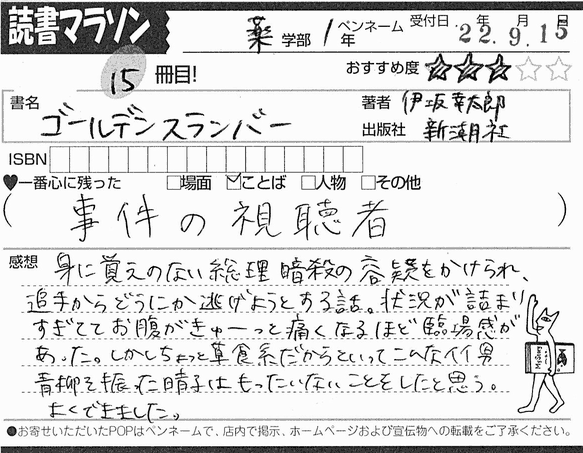 読書マラソン
薬 学部 1 年 ペンネーム 受付日 22.年9.月15日
15 冊目! おすすめ度 ★★★☆☆
書名 ゴールデンスランバー
著者 伊坂幸太郎
出版社 新潮社
ISBN
♥一番心に残った □場面 ☑ことば □人物 □その他
(事件の視聴者)
感想 身に覚えのない総理暗殺の容疑をかけられ、
追手からどうにか逃げようとする話。状況が詰まり
すぎててお腹がきゅーっと痛くなるほど臨場感が
あった。しかしちょっと草食系だからといってこんなイイ男
青柳を振った晴子はもったいないことをしたと思う。
よくできました。
●お寄せいただいたPOPはペンネームで、店内で掲示、ホームページおよび宣伝物への転載をご了承ください。